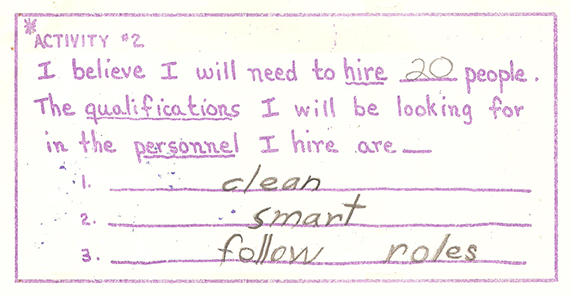 *ACTIVITY #2
I believe I will need to hire 20 people.
The qualifications I will be looking for
in the personnel I hire are —
1. clean
2. smart
3. follow roles